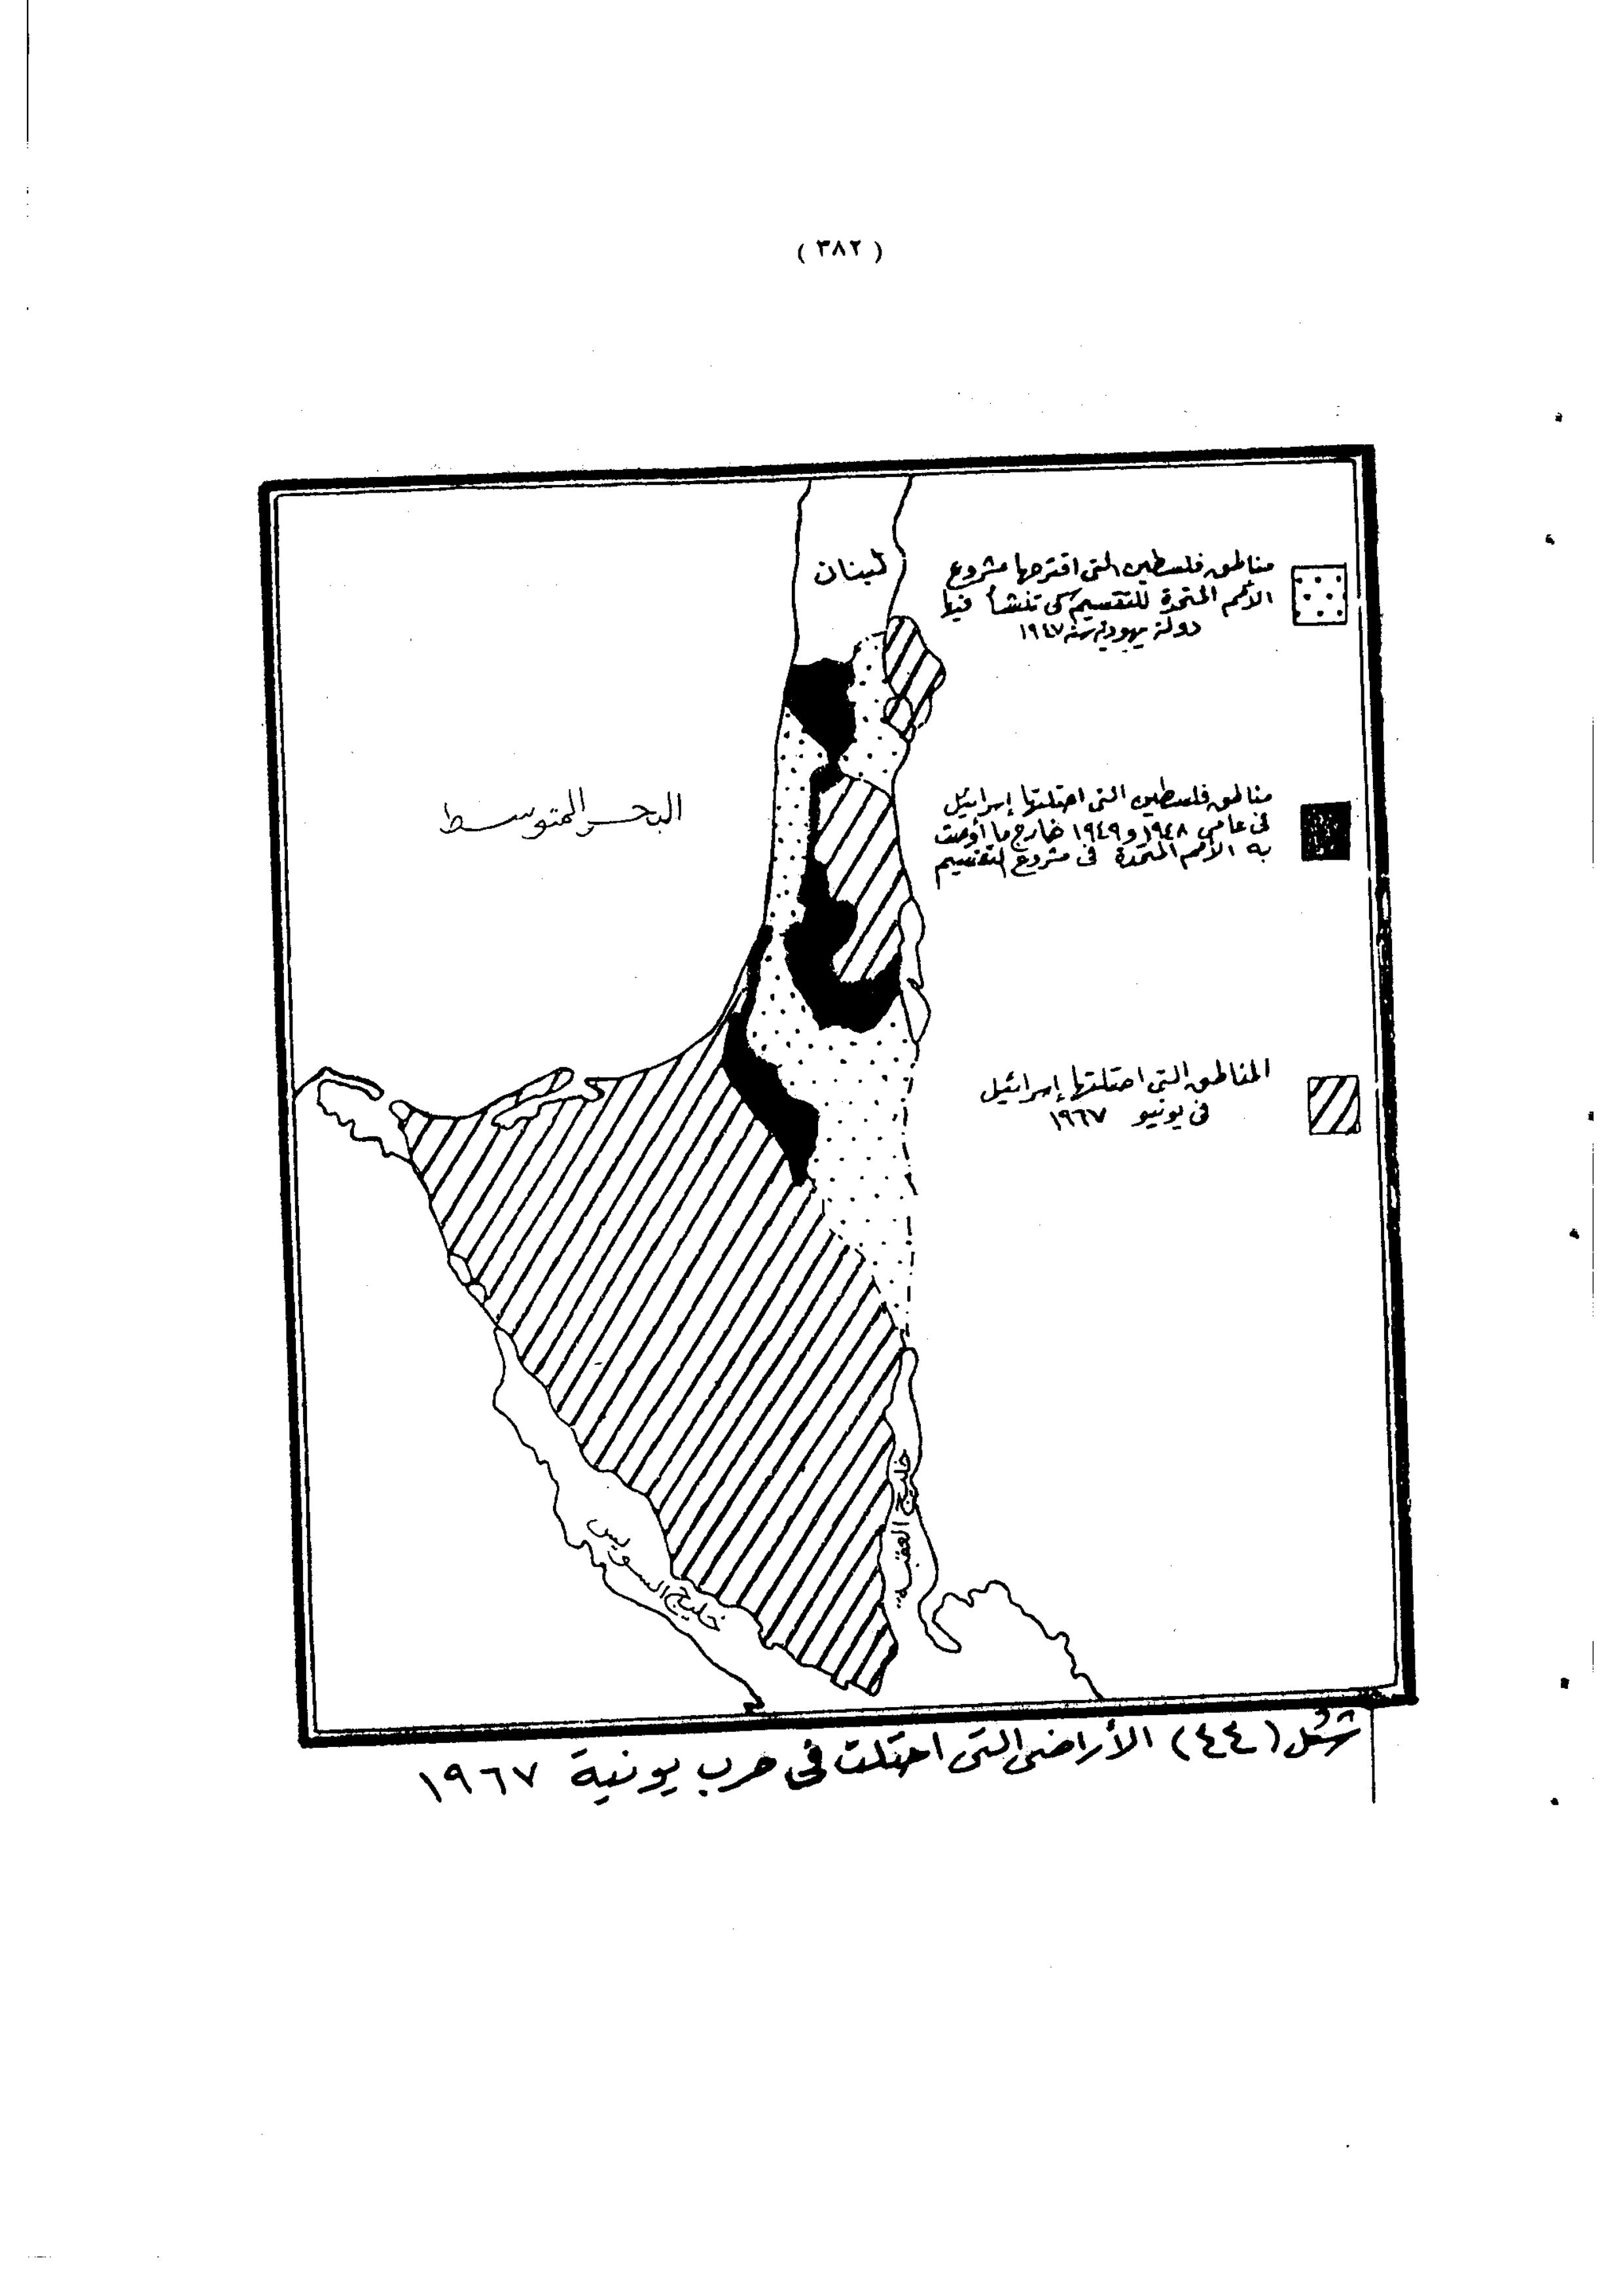 ( ٣٨٢ )
لبنان
مناطق فلسطين التى اقترحها مشروع
الأمم المتحدة للتقسيم كى تنشأ فيها
دولة يهودية سنة ١٩٤٧
البحر المتوسط
مناطق فلسطين التى احتلتها إسرائيل
فى عامى ١٩٤٨ و ١٩٤٩ خارج ما أوصت
به الأمم المتحدة فى مشروع التقسيم
المناطق التى احتلتها إسرائيل
فى يونيو ١٩٦٧
خليج العقبة
خليج السويس
شكل (٤٤) الأراضى التى احتلت فى حرب يونية ١٩٦٧